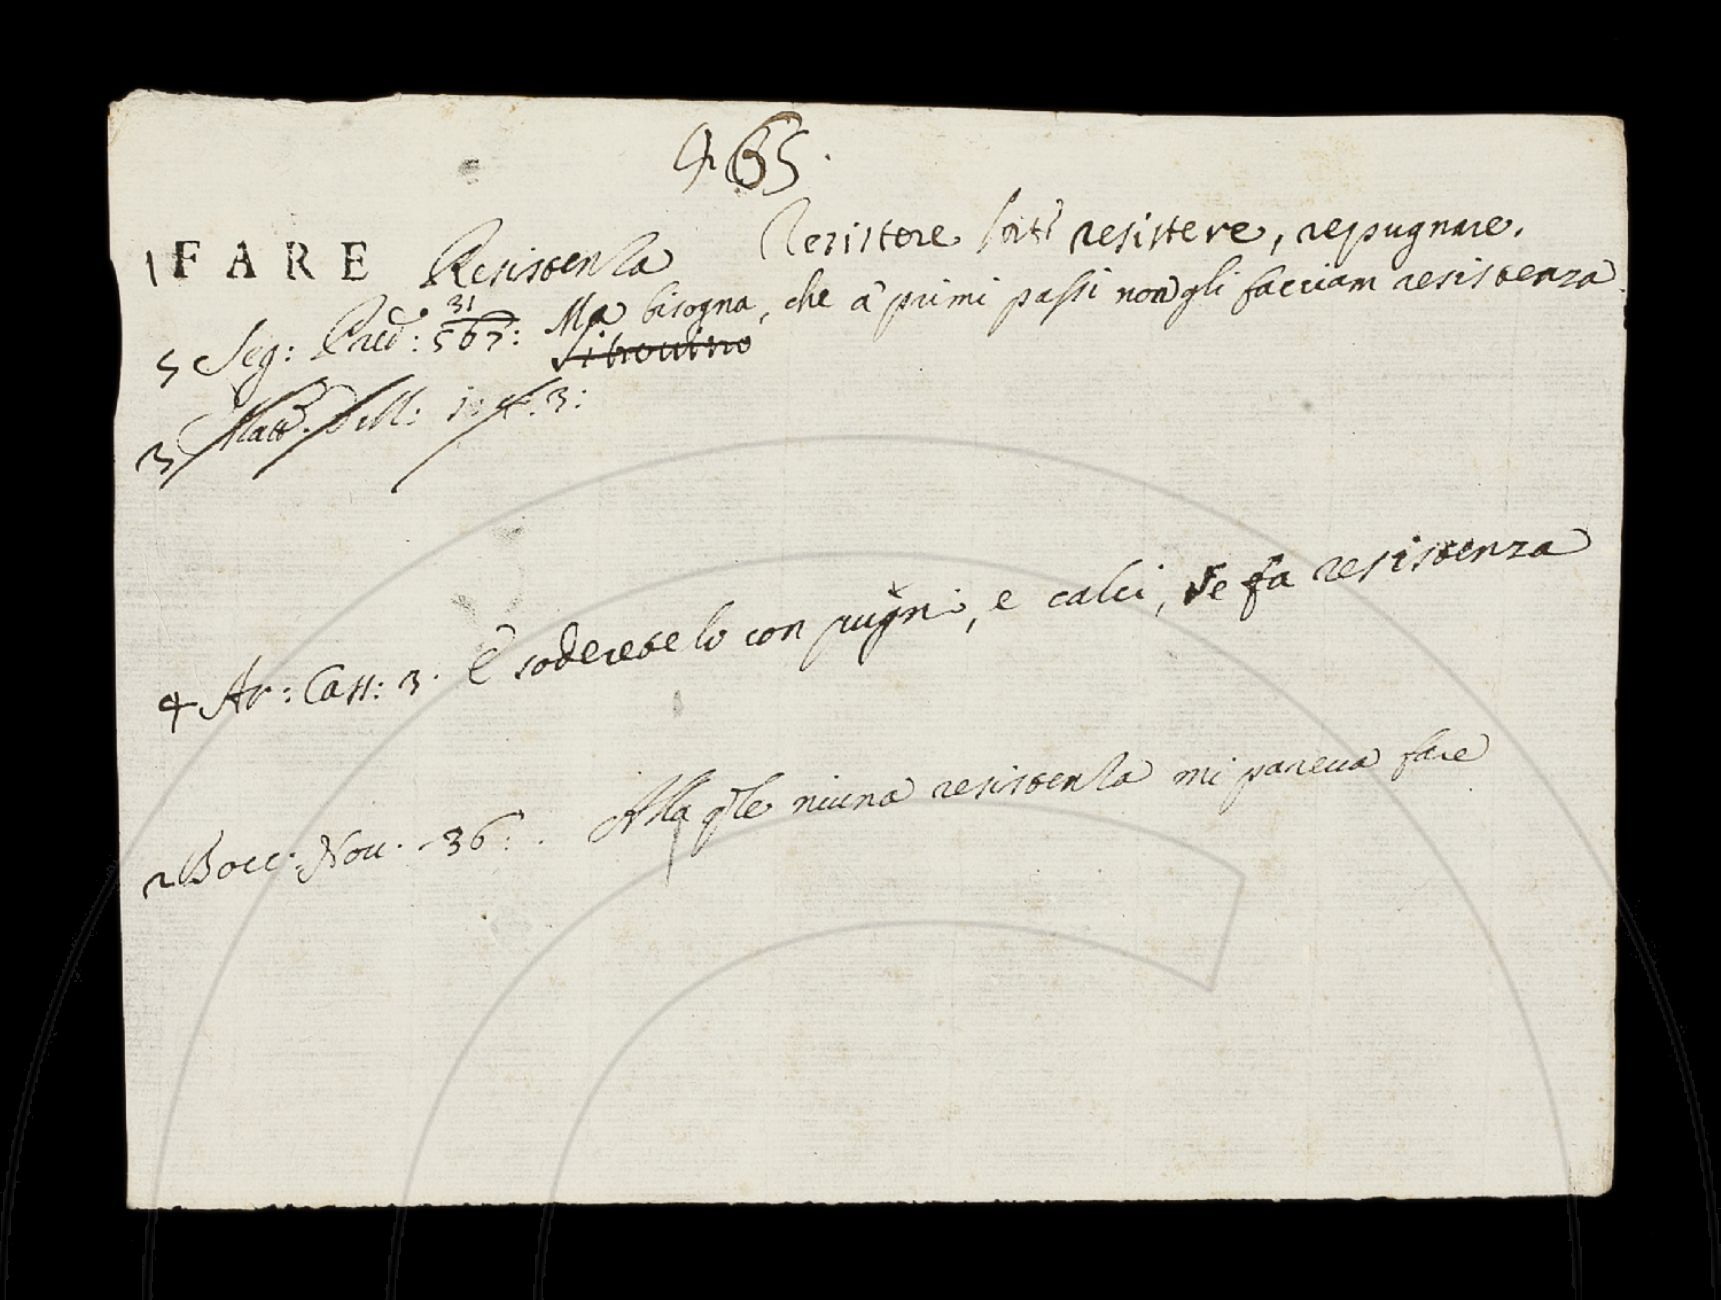 465.
1 FARE Resistenza Resistere lat: resistere, repugnare.
5 Seg: Pred: 31 567: Ma bisogna, che à primi passi non gli facciam resistenza
3 Matt. 3:
4 Ar: Cass: 3. E soderetelo con pugni, e calci, se fa resistenza
2 Bocc. Nov. 36. Alla qle niuna resistenza mi pareua fare